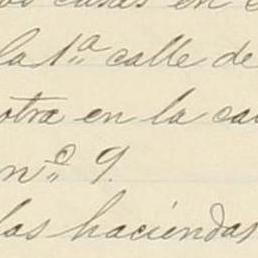 casas en
la 1ª calle de
otra en la
nº 9.
las haciendas